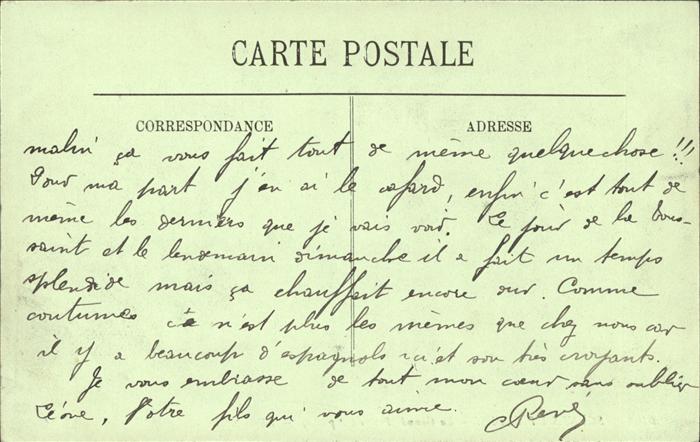 CARTE POSTALE
CORRESPONDANCE
ADRESSE
malin ça vous fait tout de même quelquechose !!!
Pour ma part j'en ai le cafard, enfin c'est tout de
même les derniers que je vais voir. Le jour de la Tous-
saint et le lendemain dimanche il a fait un temps
splendide mais ça chauffait encore dur. Comme
coutumes ce n'est plus les mêmes que chez nous car
il y a beaucoup d'espagnols ici et son très croyants.
Je vous embrasse de tout mon cœur sans oublier
Léone, Votre fils qui vous aime. René